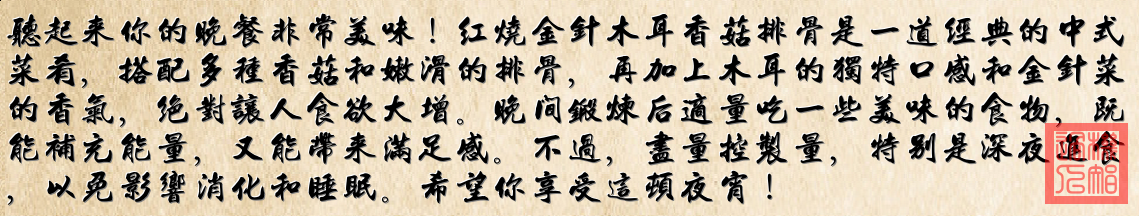 聽起来你的晚餐非常美味！红燒金針木耳香菇排骨是一道經典的中式
菜肴，搭配多種香菇和嫩滑的排骨，再加上木耳的獨特口感和金針菜
的香氣，绝對讓人食欲大增。晚间鍛煉后適量吃一些美味的食物，既
能補充能量，又能帶来滿足感。不過，盡量控製量，特别是深夜進食
，以免影響消化和睡眠。希望你享受這頓夜宵！